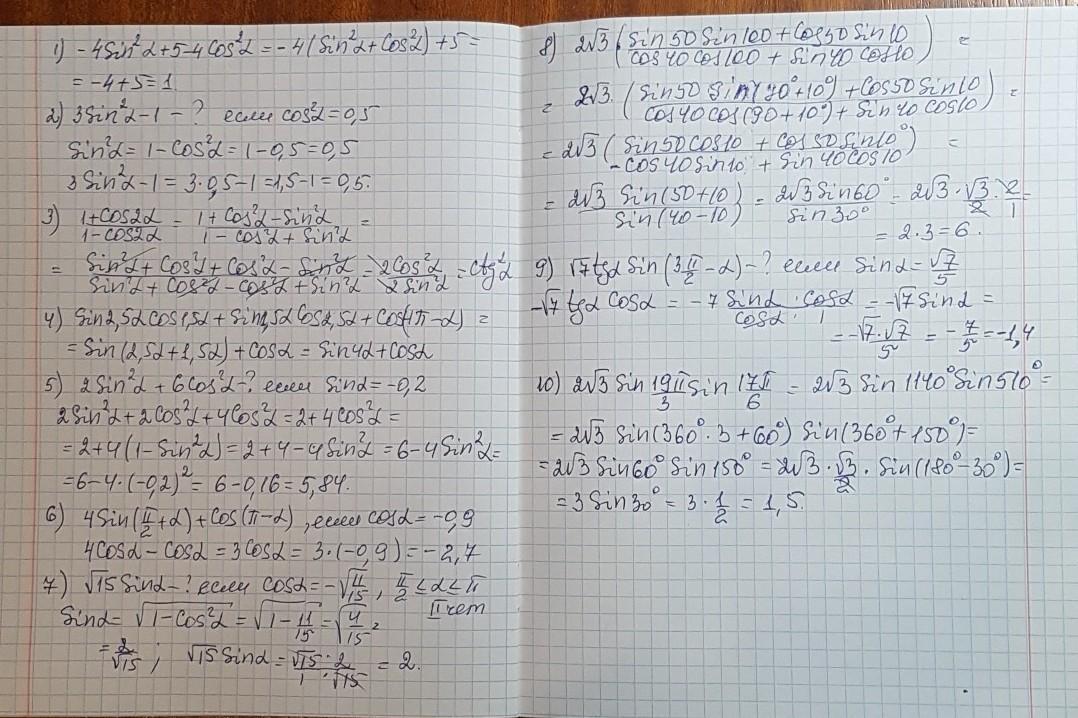 1) -4Sin²α+5-4Cos²α = -4(Sin²α+Cos²α)+5=
= -4+5=1.
2) 3Sin²α-1 - ? если cos²α=0,5
Sin²α = 1-Cos²α = 1-0,5=0,5
3Sin²α-1 = 3·0,5-1=1,5-1=0,5.
3) (1+cos2α)/(1-cos2α) = (1+cos²α-Sin²α)/(1-cos²α+Sin²α) =
= (Sin²α+Cos²α+Cos²α-Sin²α)/(Sin²α+Cos²α-cos²α+Sin²α) = 2Cos²α/2Sin²α = ctg²α
4) Sin2,5α cos1,5α + Sin1,5α Cos2,5α + Cos(4π-α) =
= Sin(2,5α+1,5α)+Cosα = Sin4α+cosα
5) 2Sin²α + 6Cos²α-? если Sinα=-0,2
2Sin²α+2Cos²α+4Cos²α=2+4cos²α=
=2+4(1-Sin²α)=2+4-4Sin²α=6-4Sin²α=
=6-4·(-0,2)²= 6-0,16=5,84.
6) 4Sin(π/2+α)+Cos(π-α), если cosα=-0,9
4cosα-cosα=3cosα=3·(-0,9)=-2,7
7) √15 Sinα-? если cosα=-√(11/15), π/2≤α≤π
Sinα=√(1-cos²α)=√(1-11/15)=√(4/15)= II чет
=2/√15; √15 Sinα=(√15·2)/(1·√15)=2.
8) 2√3(Sin50Sin100+Cos50Sin10)/(Cos40cos100+Sin40cos10) =
= 2√3·(Sin50 Sin(90°+10°)+Cos50Sin10)/(Cos40cos(90+10°)+Sin40cos10) =
=2√3(Sin50cos10+Cos50sin10°)/(-cos40Sin10+Sin40cos10) =
= 2√3 Sin(50+10)/Sin(40-10) = 2√3Sin60°/Sin30° = 2√3·√3/2·2/1=
= 2·3=6.
9) √7tgα Sin(3π/2-α)-? если Sinα=√7/5
-√7tgα cosα = -7 Sinα/cosα·cosα/1 = -√7Sinα =
= -√7·√7/5 = -7/5=-1,4
10) 2√3 Sin 19π/3 Sin 17π/6 = 2√3 Sin 1140°Sin510°=
=2√3 Sin(360°·3+60°) Sin(360°+150°)=
=2√3Sin60°Sin150°=2√3·√3/2·Sin(180°-30°)=
=3Sin30°=3·1/2=1,5.